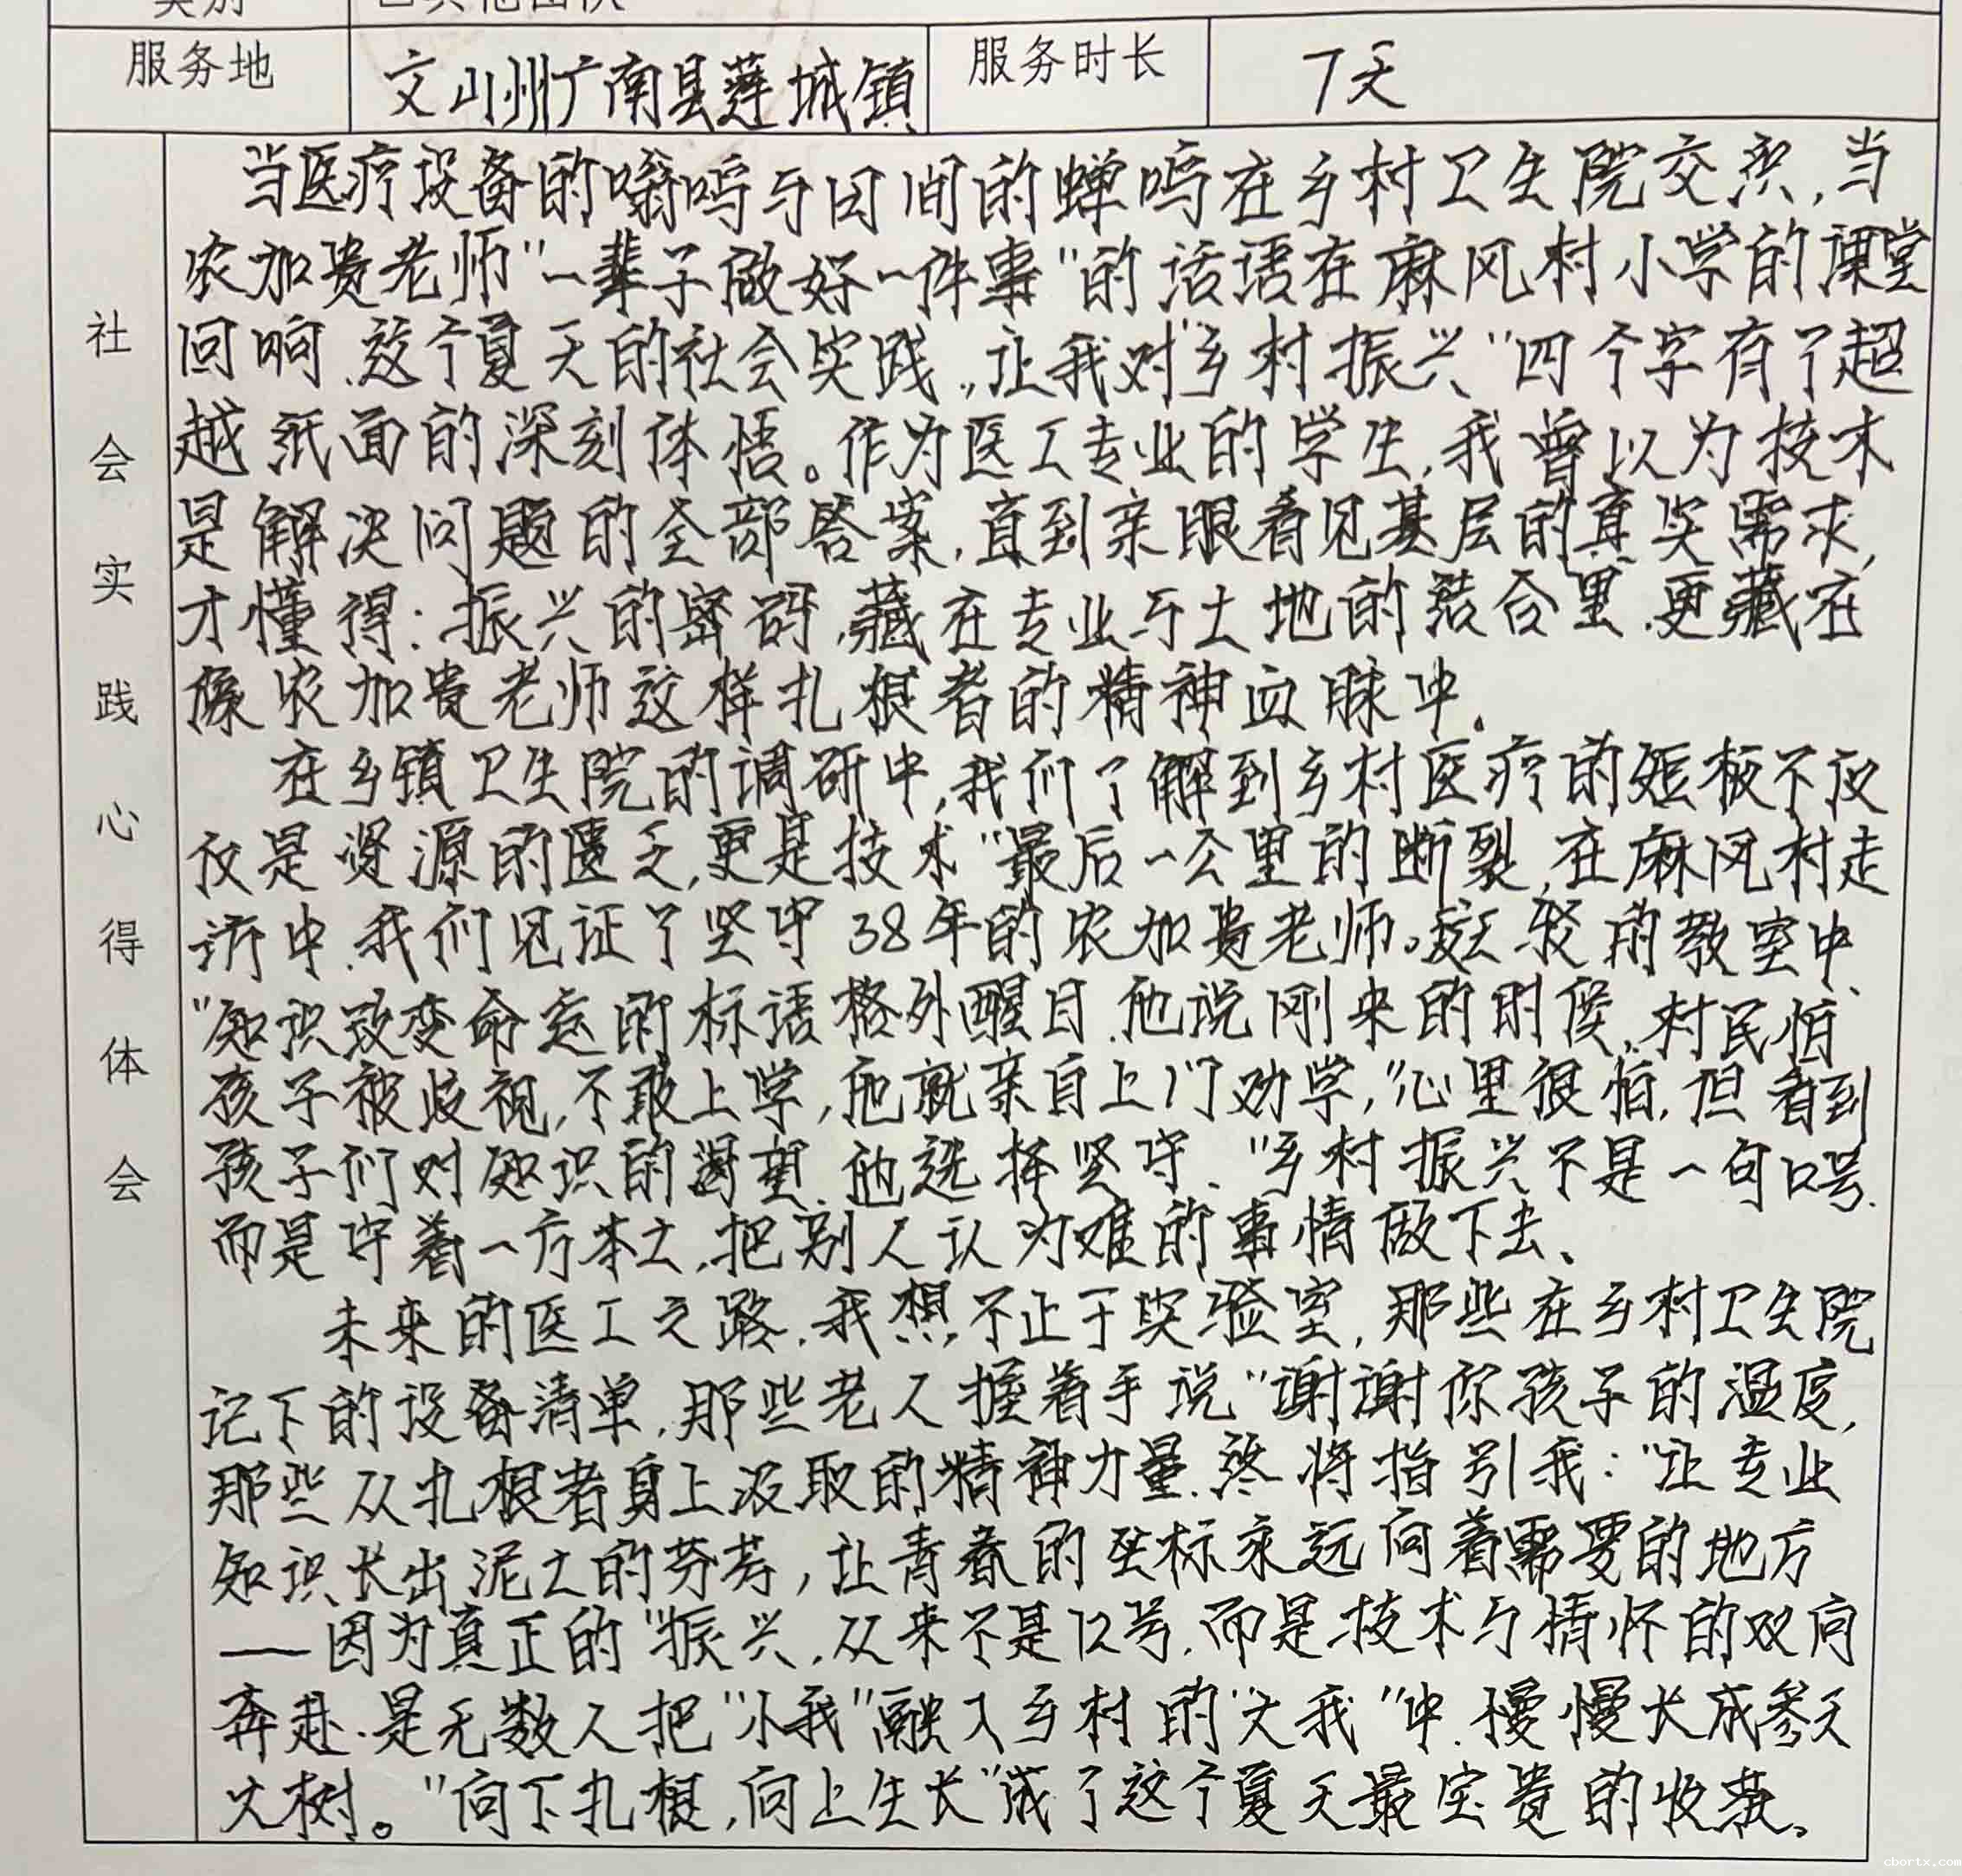 服务地 文山州广南县莲城镇 服务时长 7天
社会实践心得体会
当医疗设备的嗡鸣与田间的蝉鸣在乡村卫生院交织,当
农加贵老师"一辈子做好一件事"的话语在麻风村小学的课堂
回响,这个夏天的社会实践,让我对"乡村振兴"四个字有了超
越纸面的深刻体悟。作为医工专业的学生,我曾以为技术
是解决问题的全部答案,直到亲眼看见基层的真实需求,
才懂得:振兴的密码,藏在专业与土地的结合里,更藏在
像农加贵老师这样扎根者的精神血脉中。
在乡镇卫生院的调研中,我们了解到乡村医疗的短板不仅
仅是资源的匮乏,更是技术"最后一公里的断裂,在麻风村走
访中,我们见证了坚守38年的农加贵老师。斑驳的教室中,
"知识改变命运的标语格外醒目,他说刚来的时候,村民怕
孩子被歧视,不敢上学,他就亲自上门劝学,"心里很怕,但看到
孩子们对知识的渴望,他选择坚守,"乡村振兴不是一句口号,
而是守着一方本土,把别人认为难的事情做下去、
未来的医工之路,我想,不止于实验室,那些在乡村卫生院
记下的设备清单,那些老人握着手说"谢谢你孩子的温度,
那些从扎根者身上汲取的精神力量,终将指引我:"让专业
知识长出泥土的芬芳,让青春的坐标永远向着需要的地方
——因为真正的"振兴,从来不是口号,而是技术与情怀的双向
奔赴,是无数人把"小我"融入乡村的"大我"中,慢慢长成参天
大树。"向下扎根,向上生长"成了这个夏天最宝贵的收获。
cbortx.com